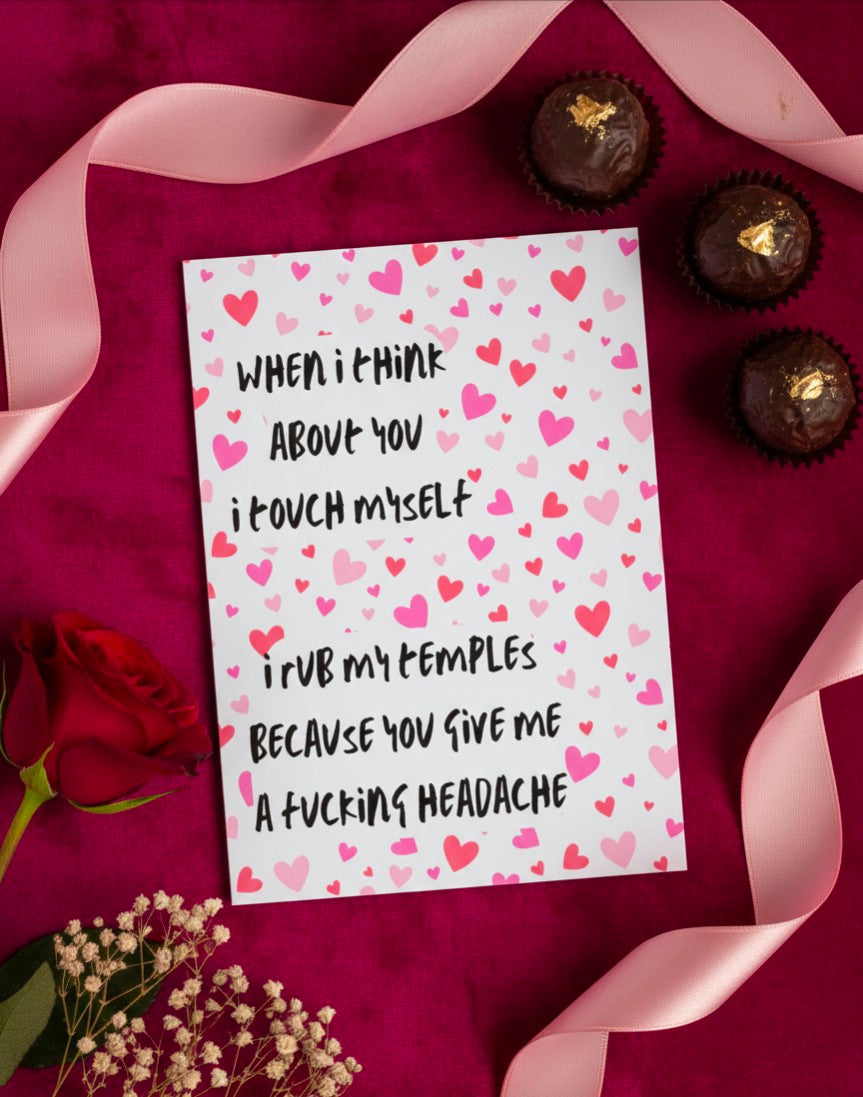 WHEN i tHiNK
ABOUt YOU
i tOUCH MYsELf
i rUB MY tEMPLEs
BECAUsE YOU GiVE ME
A fUCKiNG HEADACHE